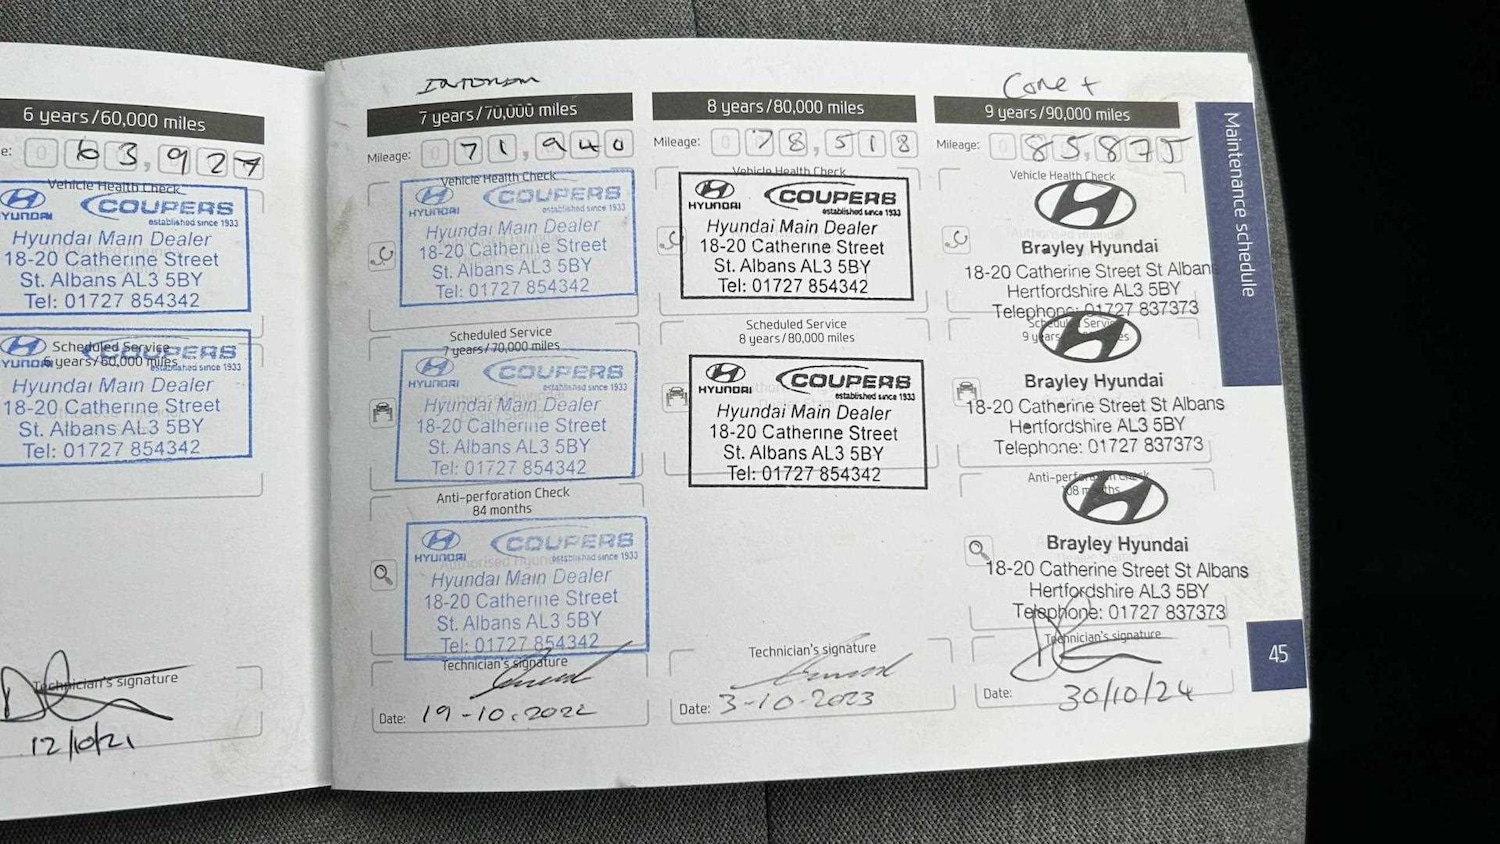 6 years/60,000 miles
e: 0 63,927
Vehicle Health Check
HYUNDAI COUPERS
established since 1933
Hyundai Main Dealer
18-20 Catherine Street
St. Albans AL3 5BY
Tel: 01727 854342
Scheduled Service
6 years/60,000 miles
HYUNDAI COUPERS
established since 1933
Hyundai Main Dealer
18-20 Catherine Street
St. Albans AL3 5BY
Tel: 01727 854342
Technician's signature
12/10/21
7 years/70,000 miles
Mileage: 0 71,940
Vehicle Health Check
HYUNDAI COUPERS
established since 1933
Hyundai Main Dealer
18-20 Catherine Street
St. Albans AL3 5BY
Tel: 01727 854342
Scheduled Service
7 years/70,000 miles
HYUNDAI COUPERS
established since 1933
Hyundai Main Dealer
18-20 Catherine Street
St. Albans AL3 5BY
Tel: 01727 854342
Anti-perforation Check
84 months
HYUNDAI COUPERS
established since 1933
Hyundai Main Dealer
18-20 Catherine Street
St. Albans AL3 5BY
Tel: 01727 854342
Technician's signature
Date: 19-10.2022
8 years/80,000 miles
Mileage: 0 78,518
Vehicle Health Check
HYUNDAI COUPERS
established since 1933
Hyundai Main Dealer
18-20 Catherine Street
St. Albans AL3 5BY
Tel: 01727 854342
Scheduled Service
8 years/80,000 miles
HYUNDAI COUPERS
established since 1933
Hyundai Main Dealer
18-20 Catherine Street
St. Albans AL3 5BY
Tel: 01727 854342
Technician's signature
Date: 3-10-2023
9 years/90,000 miles
Mileage: 0 85,875
Vehicle Health Check
Brayley Hyundai
18-20 Catherine Street St Albans
Hertfordshire AL3 5BY
Telephone: 01727 837373
Scheduled Service
Brayley Hyundai
18-20 Catherine Street St Albans
Hertfordshire AL3 5BY
Telephone: 01727 837373
Anti-perforation Check
108 months
Brayley Hyundai
18-20 Catherine Street St Albans
Hertfordshire AL3 5BY
Telephone: 01727 837373
Technician's signature
Date: 30/10/24
Maintenance schedule
45